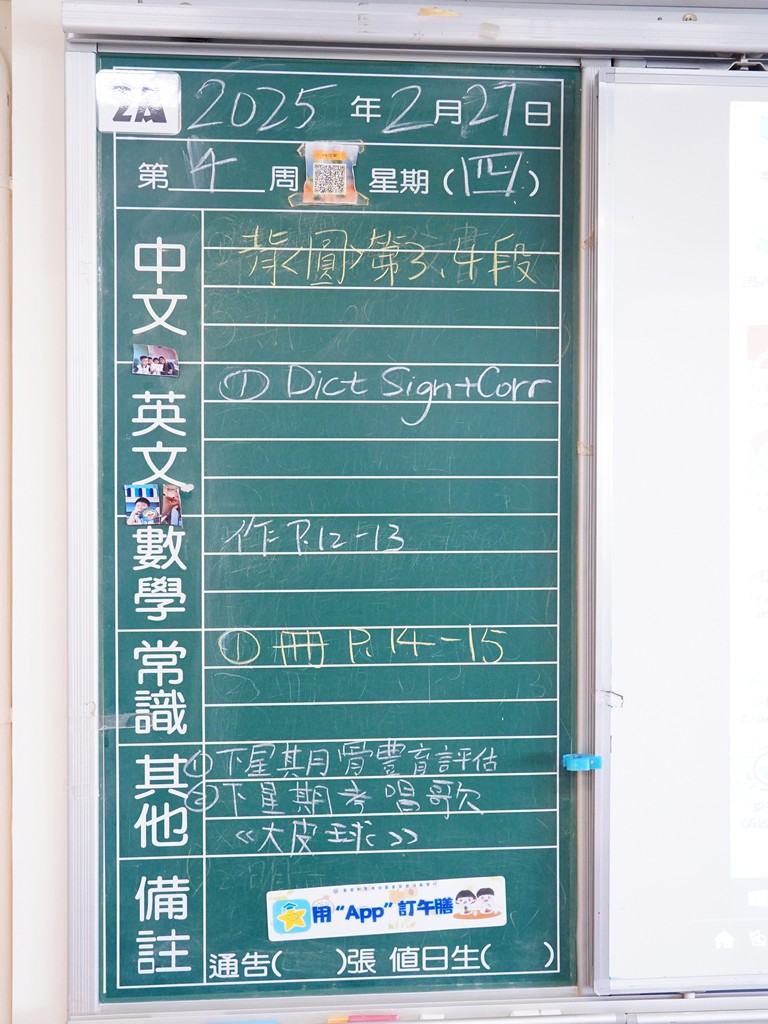 2A 2025年2月27日
第4周 星期(四)
中文
背<圓>第3、4段
英文
① Dict Sign+Corr
數學
作 P.12-13
常識
① 冊 P. 14-15
其他
① 下星期 體育評估
② 下星期考唱歌
《大皮球》
備註
用“App”訂午膳
通告( )張 值日生( )